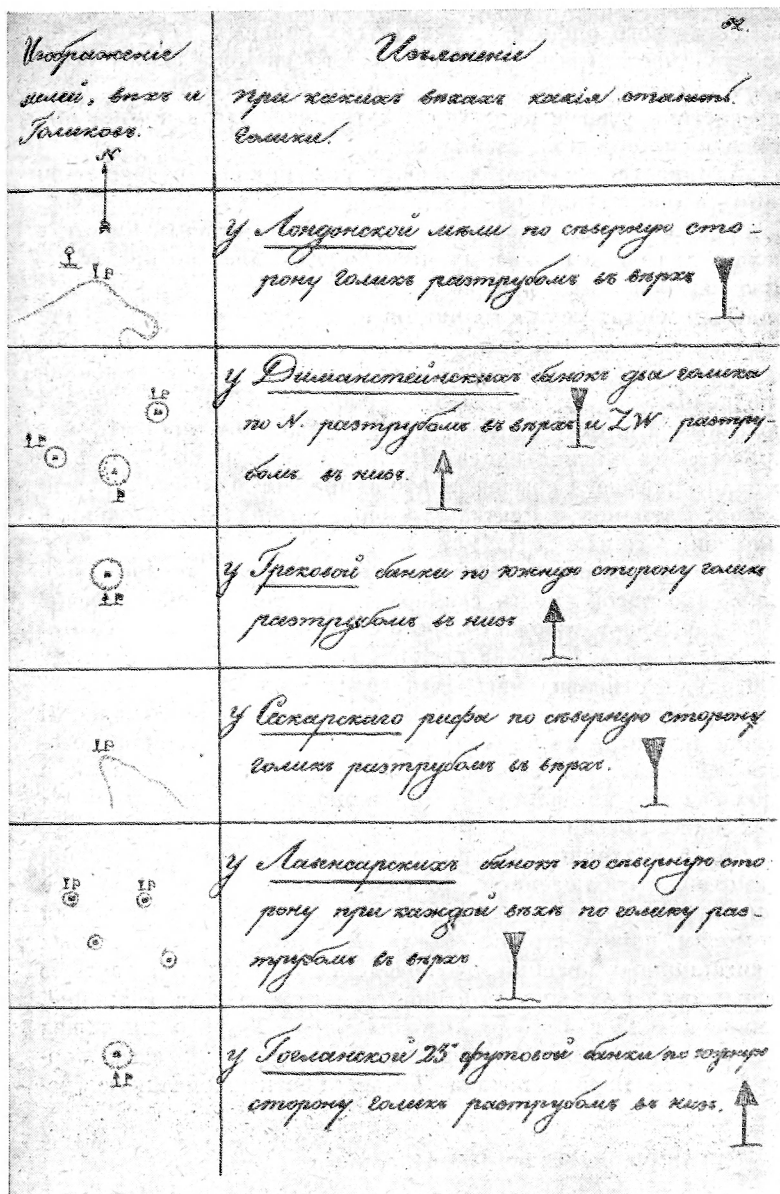 52.
Изображеніе
мелей, вѣхъ и
Голиковъ.
N
Изъясненіе
при какихъ вѣхахъ какія ставить
Голики.
У Лондонской мели по сѣверную сто-
рону голикъ разтрубомъ въ вѣрхъ
У Диманстейнскихъ банокъ два голика
по N. разтрубомъ въ вѣрхъ и ZW разтру-
бомъ въ низъ.
У Грековой банки по южную сторону голик
разтрубомъ въ низъ
У Сескарскаго рифа по сѣверную сторону
голикъ разтрубомъ въ вѣрхъ.
У Лавенсарскихъ банокъ по сѣверную сто
рону при каждой вѣхѣ по голику раз-
трубомъ въ вѣрхъ.
У Гогланской 25 футовой банки по южную
сторону голикъ разтрубомъ въ низъ.